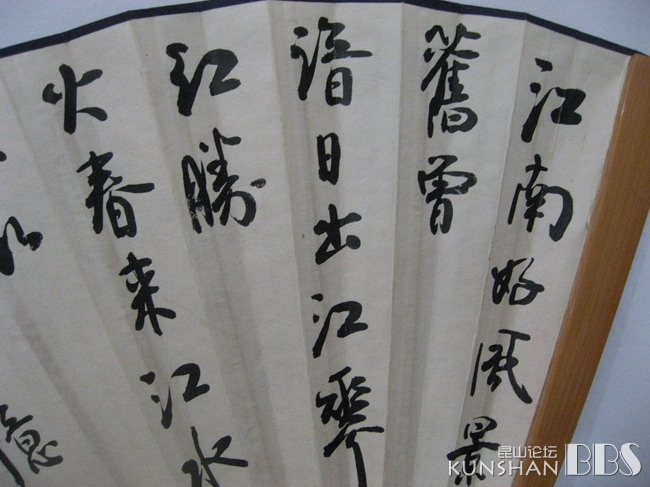 江南好風景
舊曾
諳日出江華
紅勝
火春來江水
憶
昆山论坛
KUNSHAN BBS